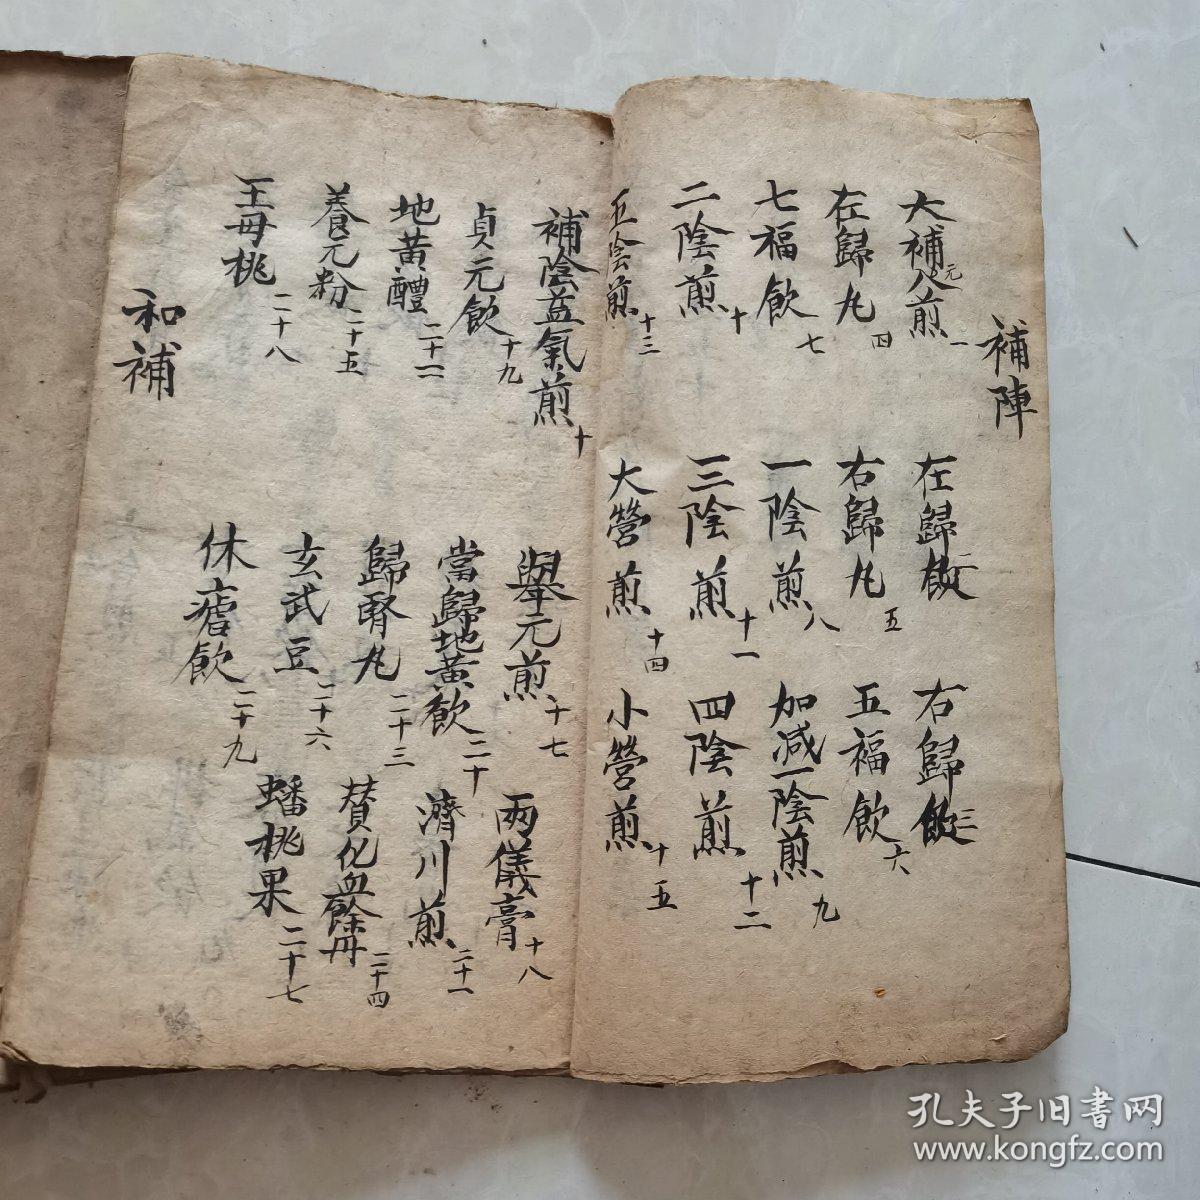 補陣
大補元煎 一
在歸飲 二
右歸飲 三
在歸丸 四
右歸丸 五
五福飲 六
七福飲 七
一陰煎 八
加减一陰煎 九
二陰煎 十
三陰煎 十一
四陰煎 十二
五陰煎 十三
大營煎 十四
小營煎 十五
補陰益氣煎 十
舉元煎 十七
兩儀膏 十八
貞元飲 十九
當歸地黃飲 二十
濟川煎 二十一
地黃醴 二十二
歸腎丸 二十三
賛化血餘丹 二十四
養元粉 二十五
玄武豆 二十六
蟠桃果 二十七
王母桃 二十八
休瘧飲 二十九
和補
孔夫子旧書网
www.kongfz.com